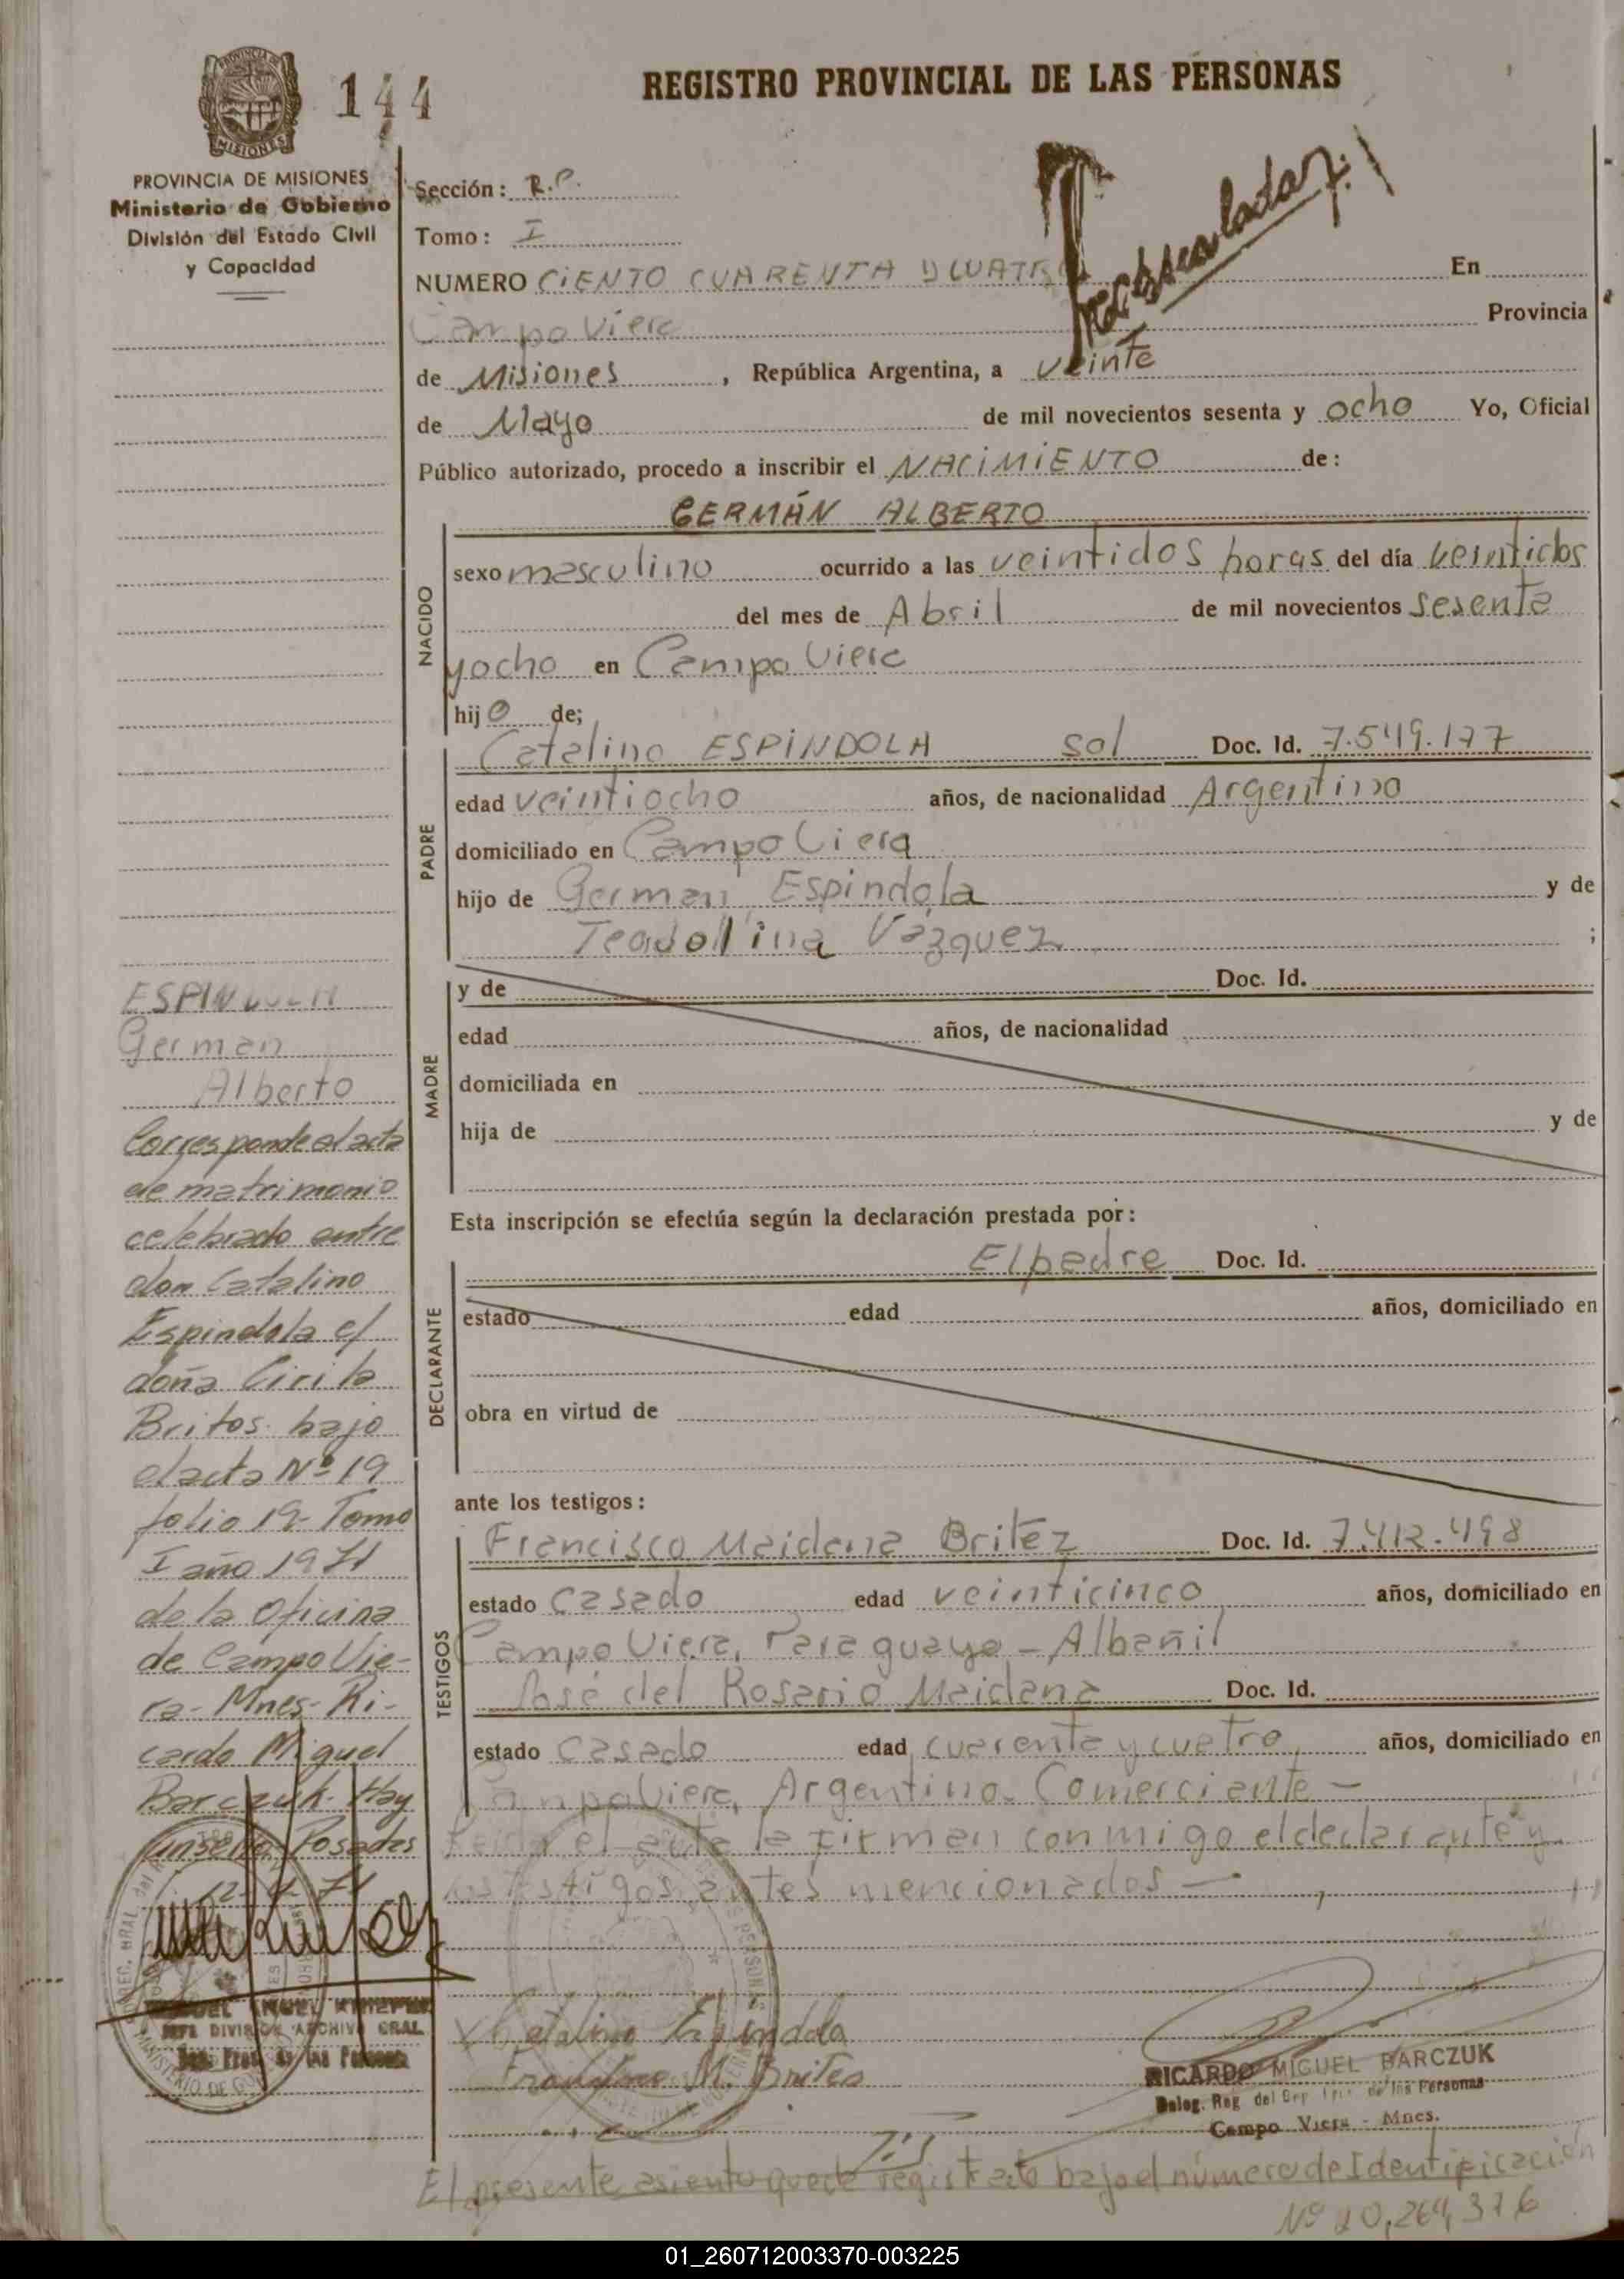 144
REGISTRO PROVINCIAL DE LAS PERSONAS
PROVINCIA DE MISIONES
Ministerio de Gobierno
División del Estado Civil
y Capacidad
Sección: R.P.
Tomo: I
NUMERO CIENTO CUARENTA Y CUATRO En
Campo Viera Provincia
de Misiones, República Argentina, a veinte
de Mayo de mil novecientos sesenta y ocho Yo, Oficial
Público autorizado, procedo a inscribir el NACIMIENTO de:
GERMÁN ALBERTO
NACIDO
sexo masculino ocurrido a las veintidos horas del día veintidos
del mes de Abril de mil novecientos sesenta
y ocho en Campo Viera
hijo de;
PADRE
Catalino ESPINDOLA sol Doc. Id. 7.549.177
edad veintiocho años, de nacionalidad Argentino
domiciliado en Campo Viera
hijo de German Espindola y de
Vazquez ;
MADRE
y de Doc. Id.
edad años, de nacionalidad
domiciliada en
hija de y de
Esta inscripción se efectúa según la declaración prestada por:
DECLARANTE
El padre Doc. Id.
estado edad años, domiciliado en
obra en virtud de
ante los testigos:
TESTIGOS
Francisco Maidana Britez Doc. Id. 7.412.498
estado casado edad veinticinco años, domiciliado en
Campo Viera, Paraguayo - Albañil
José del Rosario Maidana Doc. Id.
estado casado edad cuarenta y cuatro años, domiciliado en
Campo Viera, Argentino. Comerciante -
el acta la firman conmigo el declarante y
los testigos antes mencionados -
Catalino Espindola
M. Brites
RICARDO MIGUEL BARCZUK
Deleg. Reg. del de las Personas
Campo Viera - Mnes.
El presente asiento queda registrado bajo el número de Identificación
Nº 20,264,376
ESPINDOLA
German
Alberto
Corresponde al acta
de matrimonio
celebrado entre
don Catalino
Espindola c/
doña Cirila
Britos bajo
el acta Nº 19
folio 19- Tomo
I año 1971
de la Oficina
de Campo Vie-
ra- Mnes- Ri-
cardo Miguel
Barczuk. Hay
Posadas
JEFE DIVISION ARCHIVO GRAL
01_260712003370-003225